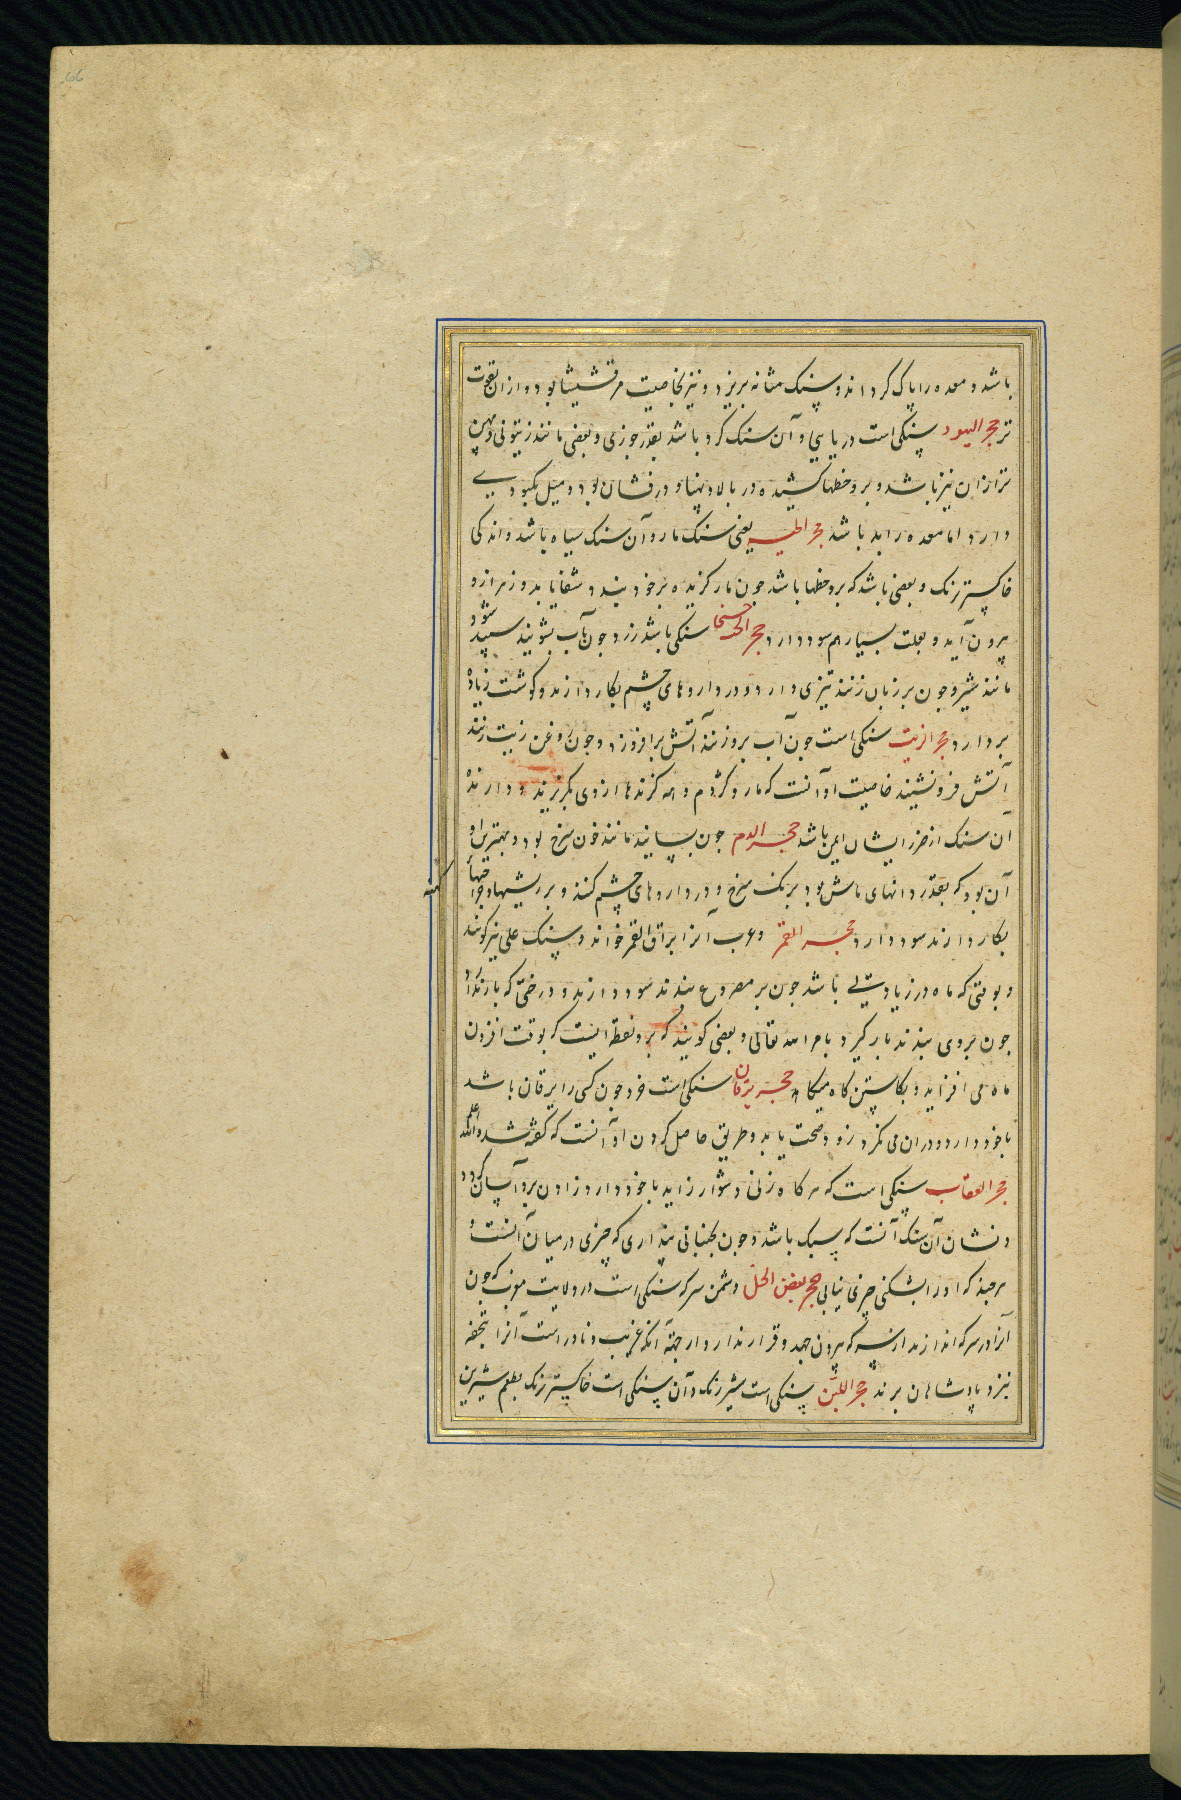 باشد و معده را پاک گرداند و سنک مثانه بریزد و نیز بخاصیت مرقشیشا بود و ازان بقوت
تر حجر الیهود سنکی است دریایی و آن سنک کرد باشد بقدر جوزی و بعضی مانند زیتونی و پهن
تر ازان نیز باشد و برو خطها کشیده در بالا و پهنا و درفشان بود و میل بکبودی
دارد اما معده را بد باشد حجر الحیه یعنی سنک مار و آن سنک سیاه باشد و اندکی
خاکستر رنک و بعضی باشد که برو خطها باشد جون مار کزیده بر خود بندد شفا یابد و زهر ازو
بیرون آید و بعلت بسیار هم سود دارد حجر سنکی باشد زرد جون بآب بشویند سپید شود
مانند شیر و جون بر زبان زنند تیزی دارد و در داروهای چشم بکار دارند و کوشت زیاده
بردارد حجر الزیت سنکی است جون آب برو زنند آتش برافروزد و جون روغن زیت زنند
آتش فرو نشیند خاصیت او آنست که مار و کژدم و همه کزندها از وی بکریزند و دارنده
آن سنک از ضرر ایشان ایمن باشد حجر الدم جون بسایند مانند خون سرخ بود و بهترین او
آن بود که بقدر دانهای ماش بود برنک سرخ و در داروهای چشم کنند و بر ریشها و جراحتها کهنه
بکار دارند سود دارد حجر القمر و عرب آنرا براق القمر خوانند و سنک علی نیز کویند
و بوقتی که ماه در زیادتی باشد جون بر مصروع بندند سود دارند و درختی که بار ندارد
جون بروی بندند بار کیرد بامر الله تعالی و بعضی کویند که برو نقطه ایست که بوقت افزون
ماه می افزاید و بکاستن کاه میکاهد حجر یرقان سنکی است خرد جون کسی را یرقان باشد
با خود دارد و دران می نکرد زود صحت یابد و طریق حاصل کردن او آنست که گفته شد والله اعلم
حجر العقاب سنکی است که هرکاه زنی دشوار زاید با خود دارد زادن برو آسان کردد
و نشان آن سنک آنست که سبک باشد و جون بجنبانی پنداری که چیزی در میان آنست و
هرچند که او را بشکنی چیزی نیابی حجر بغض الخل دشمن سرکه سنکی است در ولایت مغرب که جون
آنرا در سرکه اندازند از سرکه بیرون جهد و قرار ندارد از جهة آنکه غریب و نادر است آنرا بتحفه
نزد پادشاهان برند حجر اللبن سنکی است شیر رنک و آن سنکی است خاکستر رنک بطعم شیرین